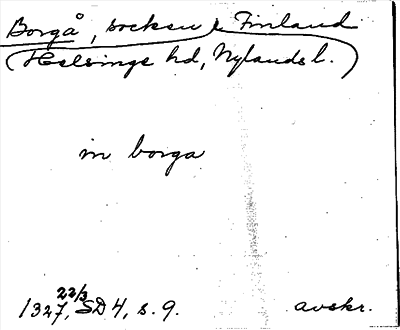 Borgå, socken i Finland
(Helsinge hd, Nylands l.)
in borga
22/3
1327, SD 4, s. 9. avskr.